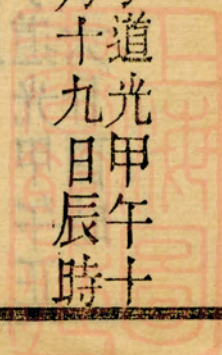 道光甲午十
十九日辰時